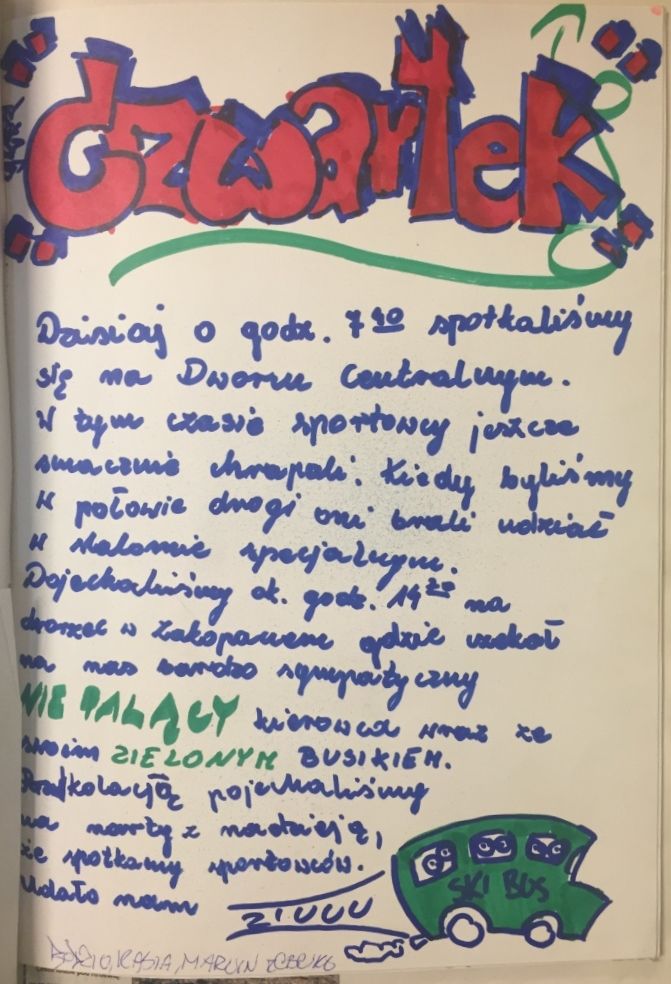 Czwartek
Dzisiaj o godz. 7 40 spotkaliśmy
się na Dworcu Centralnym.
W tym czasie sportowcy jeszcze
smacznie chrapali. Kiedy byliśmy
w połowie drogi oni brali udział
w slalomie specjalnym.
Dojechaliśmy ok. godz. 14 na
dworzec w Zakopanem gdzie czekał
na nas bardzo sympatyczny
NIE PALĄCY kierowca wraz ze
swoim ZIELONYM BUSIKIEM.
Przed kolacją pojechaliśmy
na narty z nadzieją,
że spotkamy sportowców.
Udało nam
SKI BUS
ZIUUU
KASIA, MARCIN